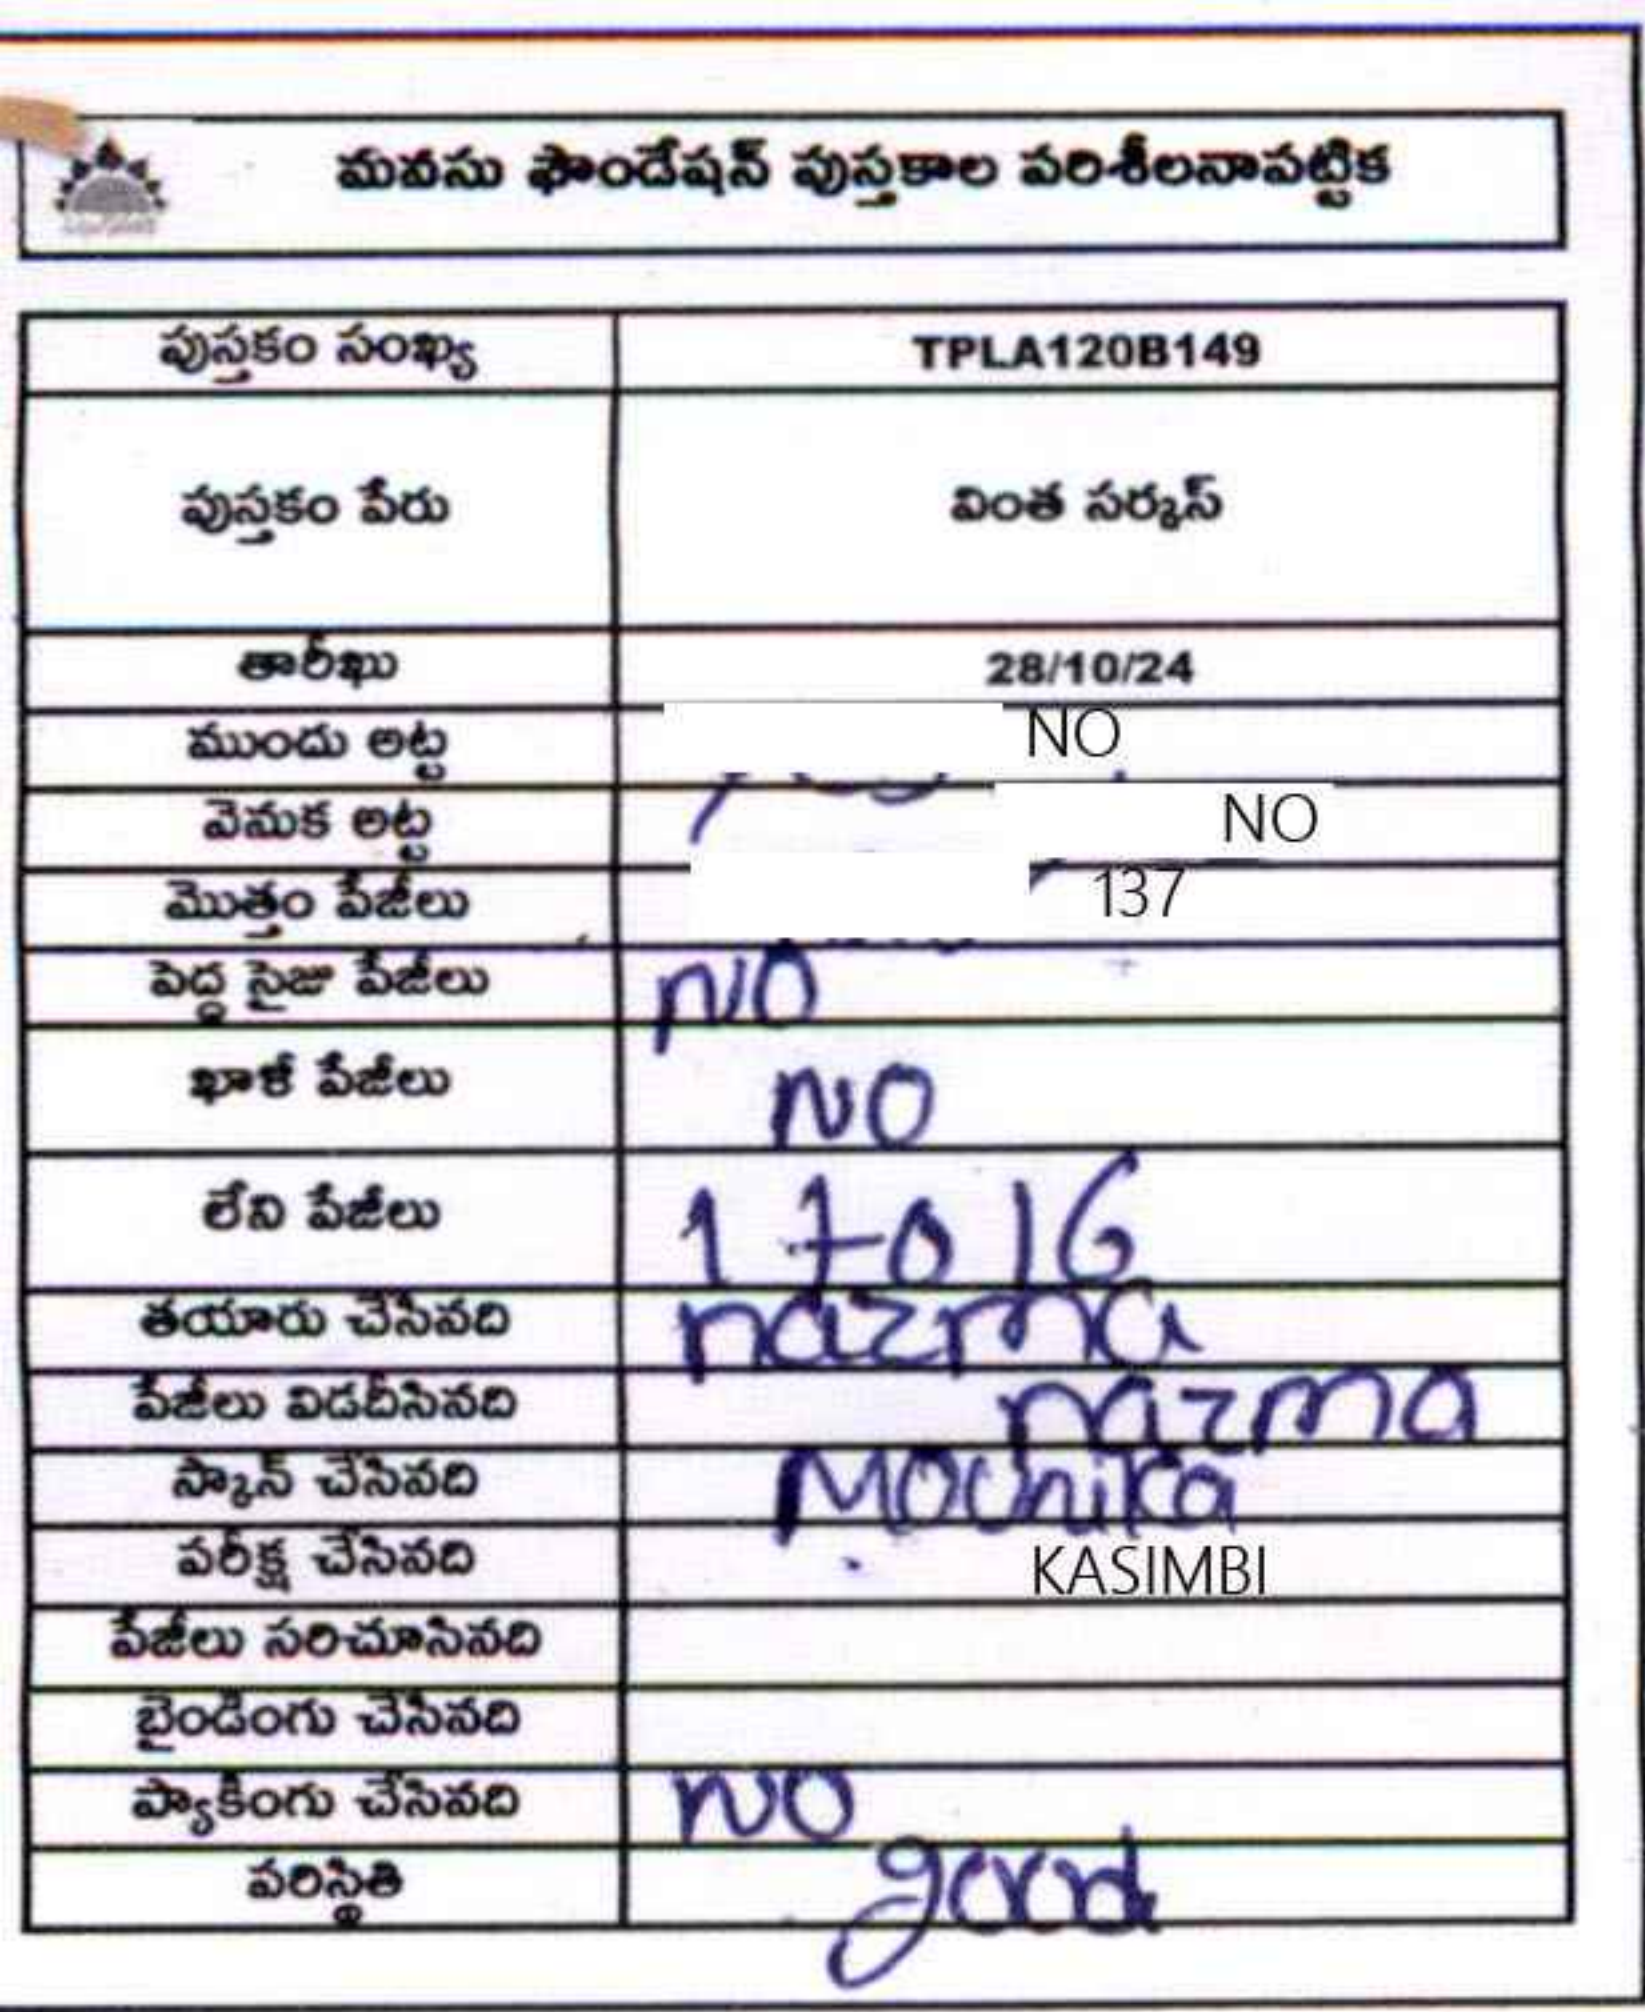 మనసు ఫౌండేషన్ పుస్తకాల పరిశీలనాపట్టిక
పుస్తకం సంఖ్య TPLA120B149
పుస్తకం పేరు వింత సర్కస్
తారీఖు 28/10/24
ముందు అట్ట NO
వెనుక అట్ట NO
మొత్తం పేజీలు 137
పెద్ద సైజు పేజీలు NO
ఖాళీ పేజీలు NO
లేని పేజీలు 1 to 16
తయారు చేసినది nazma
పేజీలు విడదీసినది nazma
స్కాన్ చేసినది Mounika
పరీక్ష చేసినది KASIMBI
పేజీలు సరిచూసినది
బైండింగు చేసినది
ప్యాకింగు చేసినది NO
పరిస్థితి good